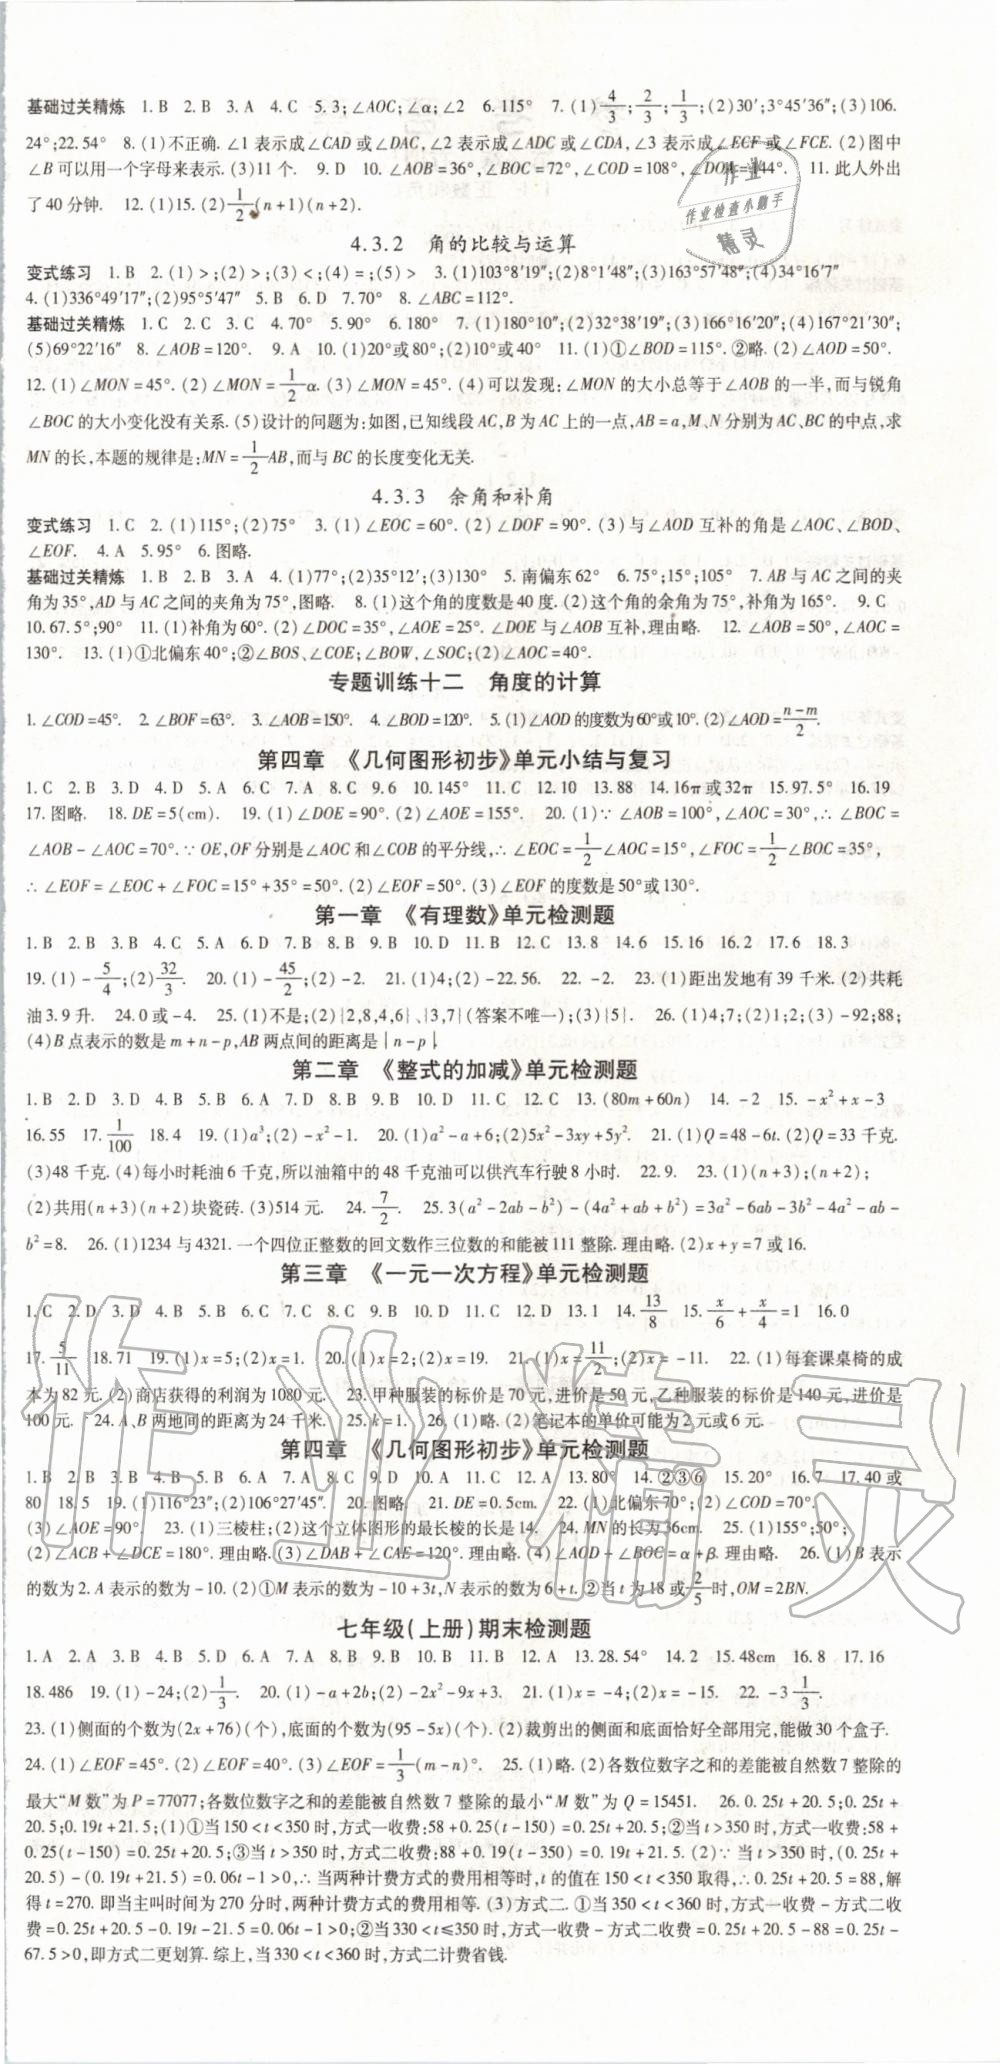 基础过关精炼 1. B 2. B 3. A 4. C 5. 3;∠AOC;∠α;∠2 6. 115° 7. (1)4/3;2/3;1/3;(2)30′;3°45′36″;(3)106.
24°;22.54° 8. (1)不正确. ∠1 表示成∠CAD 或∠DAC,∠2 表示成∠ADC 或∠CDA,∠3 表示成∠ECF 或∠FCE. (2)图中
∠B 可以用一个字母来表示. (3)11 个. 9. D 10. ∠AOB=36°,∠BOC=72°,∠COD=108°,∠DOA=144°. 11. 此人外出
了 40 分钟. 12. (1)15. (2)1/2(n+1)(n+2).
4.3.2 角的比较与运算
变式练习 1. B 2. (1)>;(2)>;(3)<;(4)=;(5)> 3. (1)103°8′19″;(2)8°1′48″;(3)163°57′48″;(4)34°16′7″
4. (1)336°49′17″;(2)95°5′47″ 5. B 6. D 7. 70° 8. ∠ABC=112°.
基础过关精炼 1. C 2. C 3. C 4. 70° 5. 90° 6. 180° 7. (1)180°10″;(2)32°38′19″;(3)166°16′20″;(4)167°21′30″;
(5)69°22′16″ 8. ∠AOB=120°. 9. A 10. (1)20°或80°;(2)10°或40° 11. (1)①∠BOD=115°. ②略. (2)∠AOD=50°.
12. (1)∠MON=45°. (2)∠MON=1/2α. (3)∠MON=45°. (4)可以发现:∠MON 的大小总等于∠AOB 的一半,而与锐角
∠BOC 的大小变化没有关系. (5)设计的问题为:如图,已知线段 AC,B 为 AC 上的一点,AB=a,M、N 分别为 AC、BC 的中点,求
MN 的长,本题的规律是:MN=1/2AB,而与 BC 的长度变化无关.
4.3.3 余角和补角
变式练习 1. C 2. (1)115°;(2)75° 3. (1)∠EOC=60°. (2)∠DOF=90°. (3)与∠AOD 互补的角是∠AOC、∠BOD、
∠EOF. 4. A 5. 95° 6. 图略.
基础过关精炼 1. B 2. B 3. A 4. (1)77°;(2)35°12′;(3)130° 5. 南偏东62° 6. 75°;15°;105° 7. AB 与 AC 之间的夹
角为35°,AD 与 AC 之间的夹角为75°,图略. 8. (1)这个角的度数是 40 度. (2)这个角的余角为75°,补角为165°. 9. C
10. 67.5°;90° 11. (1)补角为60°. (2)∠DOC=35°,∠AOE=25°. ∠DOE 与∠AOB 互补,理由略. 12. ∠AOB=50°,∠AOC=
130°. 13. (1)①北偏东40°;②∠BOS、∠COE;∠BOW、∠SOC;(2)∠AOC=40°.
专题训练十二 角度的计算
1. ∠COD=45°. 2. ∠BOF=63°. 3. ∠AOB=150°. 4. ∠BOD=120°. 5. (1)∠AOD 的度数为60°或10°. (2)∠AOD=(n-m)/2.
第四章 《几何图形初步》单元小结与复习
1. C 2. B 3. D 4. D 5. A 6. C 7. A 8. C 9. 6 10. 145° 11. C 12. 10 13. 88 14. 16π或32π 15. 97.5° 16. 19
17. 图略. 18. DE=5(cm). 19. (1)∠DOE=90°. (2)∠AOE=155°. 20. (1)∵∠AOB=100°,∠AOC=30°,∴∠BOC=
∠AOB-∠AOC=70°. ∵OE,OF 分别是∠AOC 和∠COB 的平分线,∴∠EOC=1/2∠AOC=15°,∠FOC=1/2∠BOC=35°,
∴∠EOF=∠EOC+∠FOC=15°+35°=50°. (2)∠EOF=50°. (3)∠EOF 的度数是50°或130°.
第一章 《有理数》单元检测题
1. B 2. B 3. B 4. C 5. A 6. D 7. B 8. B 9. B 10. D 11. B 12. C 13. 8 14. 6 15. 16 16. 2 17. 6 18. 3
19. (1)-5/4;(2)32/3. 20. (1)-45/2;(2)-2. 21. (1)4;(2)-22.56. 22. -2. 23. (1)距出发地有 39 千米. (2)共耗
油 3.9 升. 24. 0 或-4. 25. (1)不是;(2){2,8,4,6}、{3,7}(答案不唯一);(3){5}. 26. (1)4;7;(2)1;2;(3)-92;88;
(4)B 点表示的数是 m+n-p,AB 两点间的距离是|n-p|.
第二章 《整式的加减》单元检测题
1. B 2. D 3. D 4. B 5. B 6. A 7. D 8. B 9. B 10. D 11. C 12. C 13. (80m+60n) 14. -2 15. -x²+x-3
16. 55 17. 1/100 18. 4 19. (1)a³;(2)-x²-1. 20. (1)a²-a+6;(2)5x²-3xy+5y². 21. (1)Q=48-6t. (2)Q=33 千克.
(3)48 千克. (4)每小时耗油 6 千克,所以油箱中的 48 千克油可以供汽车行驶 8 小时. 22. 9. 23. (1)(n+3);(n+2);
(2)共用(n+3)(n+2)块瓷砖. (3)514 元. 24. 7/2. 25. 3(a²-2ab-b²)-(4a²+ab+b²)=3a²-6ab-3b²-4a²-ab-
b²=8. 26. (1)1234 与 4321. 一个四位正整数的回文数作三位数的和能被 111 整除. 理由略. (2)x+y=7 或 16.
第三章 《一元一次方程》单元检测题
1. C 2. D 3. D 4. B 5. B 6. C 7. C 8. C 9. B 10. D 11. C 12. D 13. 1 14. 13/8 15. x/6+x/4=1 16. 0
17. 5/11 18. 71 19. (1)x=5;(2)x=1. 20. (1)x=2;(2)x=19. 21. (1)x=11/2;(2)x=-11. 22. (1)每套课桌椅的成
本为 82 元. (2)商店获得的利润为 1080 元. 23. 甲种服装的标价是 70 元,进价是 50 元,乙种服装的标价是 140 元,进价是
100 元. 24. A、B 两地间的距离为 24 千米. 25. k=1. 26. (1)略. (2)笔记本的单价可能为 2 元或 6 元.
第四章 《几何图形初步》单元检测题
1. B 2. B 3. B 4. B 5. B 6. A 7. A 8. C 9. D 10. A 11. C 12. A 13. 80° 14. ②③⑥ 15. 20° 16. 7 17. 40 或
80 18. 5 19. (1)116°23″;(2)106°27′45″. 20. 图略. 21. DE=0.5cm. 22. (1)北偏东70°;(2)∠COD=70°.
(3)∠AOE=90°. 23. (1)三棱柱;(2)这个立体图形的最长棱的长是 14. 24. MN 的长为 36cm. 25. (1)155°;50°;
(2)∠ACB+∠DCE=180°. 理由略. (3)∠DAB+∠CAE=120°. 理由略. (4)∠AOD+∠BOC=α+β. 理由略. 26. (1)B 表示
的数为 2. A 表示的数为-10. (2)①M 表示的数为-10+3t,N 表示的数为 6+t. ②当 t 为 18 或2/5时,OM=2BN.
七年级(上册)期末检测题
1. A 2. A 3. B 4. B 5. D 6. A 7. A 8. B 9. B 10. B 11. B 12. A 13. 28.54° 14. 2 15. 48cm 16. 8 17. 16
18. 486 19. (1)-24;(2)1/3. 20. (1)-a+2b;(2)-2x²-9x+3. 21. (1)x=-4;(2)x=-15. 22. -3 1/3.
23. (1)侧面的个数为(2x+76)(个),底面的个数为(95-5x)(个). (2)裁剪出的侧面和底面恰好全部用完,能做 30 个盒子.
24. (1)∠EOF=45°. (2)∠EOF=40°. (3)∠EOF=1/3(m-n)°. 25. (1)略. (2)各数位数字之和的差能被自然数 7 整除的
最大“M 数”为 P=77077;各数位数字之和的差能被自然数 7 整除的最小“M 数”为 Q=15451. 26. 0.25t+20.5;0.25t+
20.5;0.19t+21.5;(1)①当 150<t<350 时,方式一收费:58+0.25(t-150)=0.25t+20.5;②当 t>350 时,方式一收费:58+
0.25(t-150)=0.25t+20.5;③当 t>350 时,方式二收费:88+0.19(t-350)=0.19t+21.5. (2)∵当 t>350 时,(0.25t+
20.5)-(0.19t+21.5)=0.06t-1>0,∴当两种计费方式的费用相等时,t 的值在 150<t<350 取得,∴0.25t+20.5=88,解
得 t=270. 即当主叫时间为 270 分时,两种计费方式的费用相等. (3)方式二. ①当 350<t<360 时,方式一收费-方式二收
费=0.25t+20.5-0.19t-21.5=0.06t-1>0;②当 330<t≤350 时,方式一收费-方式二收费=0.25t+20.5-88=0.25t-
67.5>0,即方式二更划算. 综上,当 330<t<360 时,方式二计费省钱.
作业
作业检查小助手
精灵
作业精灵